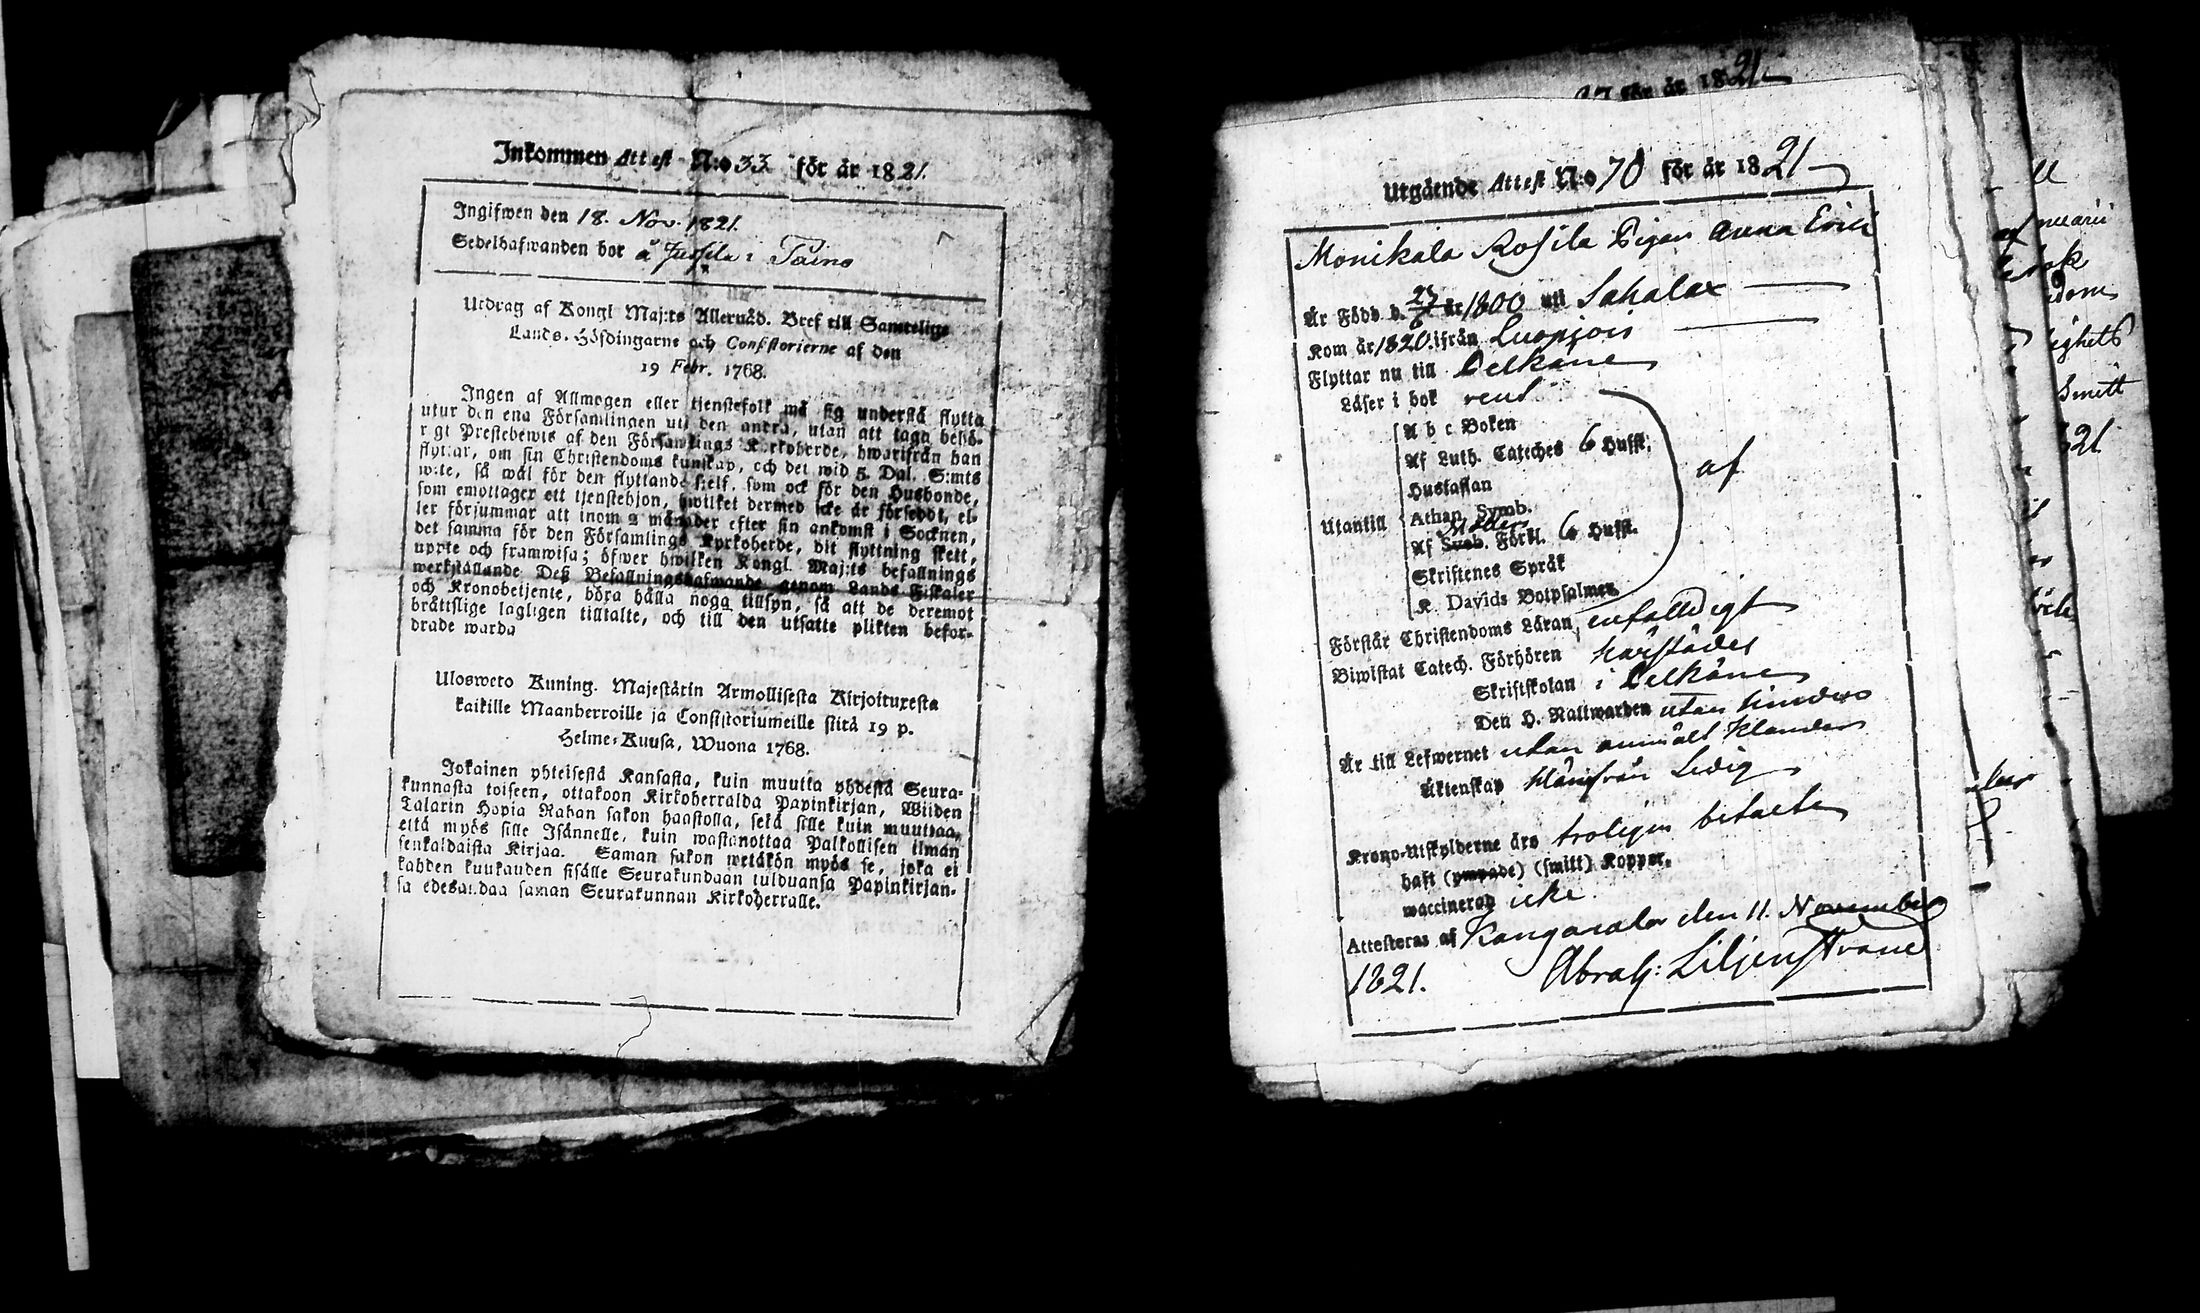 Inkommen Attest N:o 33 för år 1821.
Ingifwen den 18. Nov. 1821.
Sedelhafwanden bor å Jussila i Painо
Utdrag af Kongl Maj:ts Allernåd. Bref till Samtelige
Lands-Höfdingarne och Consistorierne af den
19 Febr. 1768.
Ingen af Allmogen eller tjenstefolk må sig understå flytta
utur den ena Församlingen uti den andra, utan att taga behö-
rigt Prestebewis af den Församlings Kyrkoherde, hwarifrån han
flyttar, om sin Christendoms kunskap, och det wid 5. Dal. S:mts
wite, så wäl för den flyttande sjelf, som ock för den Husbonde,
som emottager ett tjenstehjon, hwilket dermed icke är försedt, el-
ler försummar att inom 2 månader efter sin ankomst i Socknen,
det samma för den Församlings Kyrkoherde, dit flyttning skett,
uppte och framwisa; öfwer hwilken Kongl. Maj:ts befallnings
werkställande Deß Befallningshafwande genom Lands-Fiskaler
och Kronobetjente, böra hålla noga tillsyn, så att de deremot
bråttslige lagligen tilltalte, och till den utsatte plikten befor-
drade warda
Ulosweto Kuning. Majestätin Armollisesta Kirjoituxesta
kaikille Maanherroille ja Consistoriumeille siitä 19 p.
Helme-Kuusa, Wuona 1768.
Jokainen yhteisestä Kansasta, kuin muutta yhdestä Seura-
kunnasta toiseen, ottakoon Kirkoherralda Papinkirjan, Wiiden
Talarin Hopia Rahan sakon haastolla, sekä sille kuin muuttaa,
että myös sille Isännelle, kuin wastanottaa Palkollisen ilman
senkaldaista Kirjaa. Saman sakon wetäkön myös se, joka ei
kahden kuukauden sisälle Seurakundaan tulduansa Papinkirjan-
sa edesandaa saman Seurakunnan Kirkoherralle.
för år 1821
Utgående Attest N:o 70 för år 1821
Monikala Rosila Pigan Anna Erici
Är Född d. 23/6 år 1800 uti Sahalax
Kom år 1820. ifrån Luopiois
Flyttar nu till Pelkäne
Läser i bok rent
A b c Boken
Af Luth. Cateches 6 Hufst.
Hustaflan
Utantill Athan. Symb.
Af Symb. Förkl. 6 Hufst. af
Skriftenes Språk
K. Davids Botpsalmer
Förstår Christendoms Läran enfalldigt
Biwistat Catech. Förhören härstädes
Skriftskolan i Pelkäne
Den H. Nattwarden utan hinder
Är till Lefwernet utan anmält klander
Äktenskap härifrån Ledig
Krono-Utskylderne äro troligen betalte
haft (ympade) (smitt) Koppor,
waccinerad icke.
Attesteras af Kangasala den 11. November
1821. Abrah: Liljenstrand